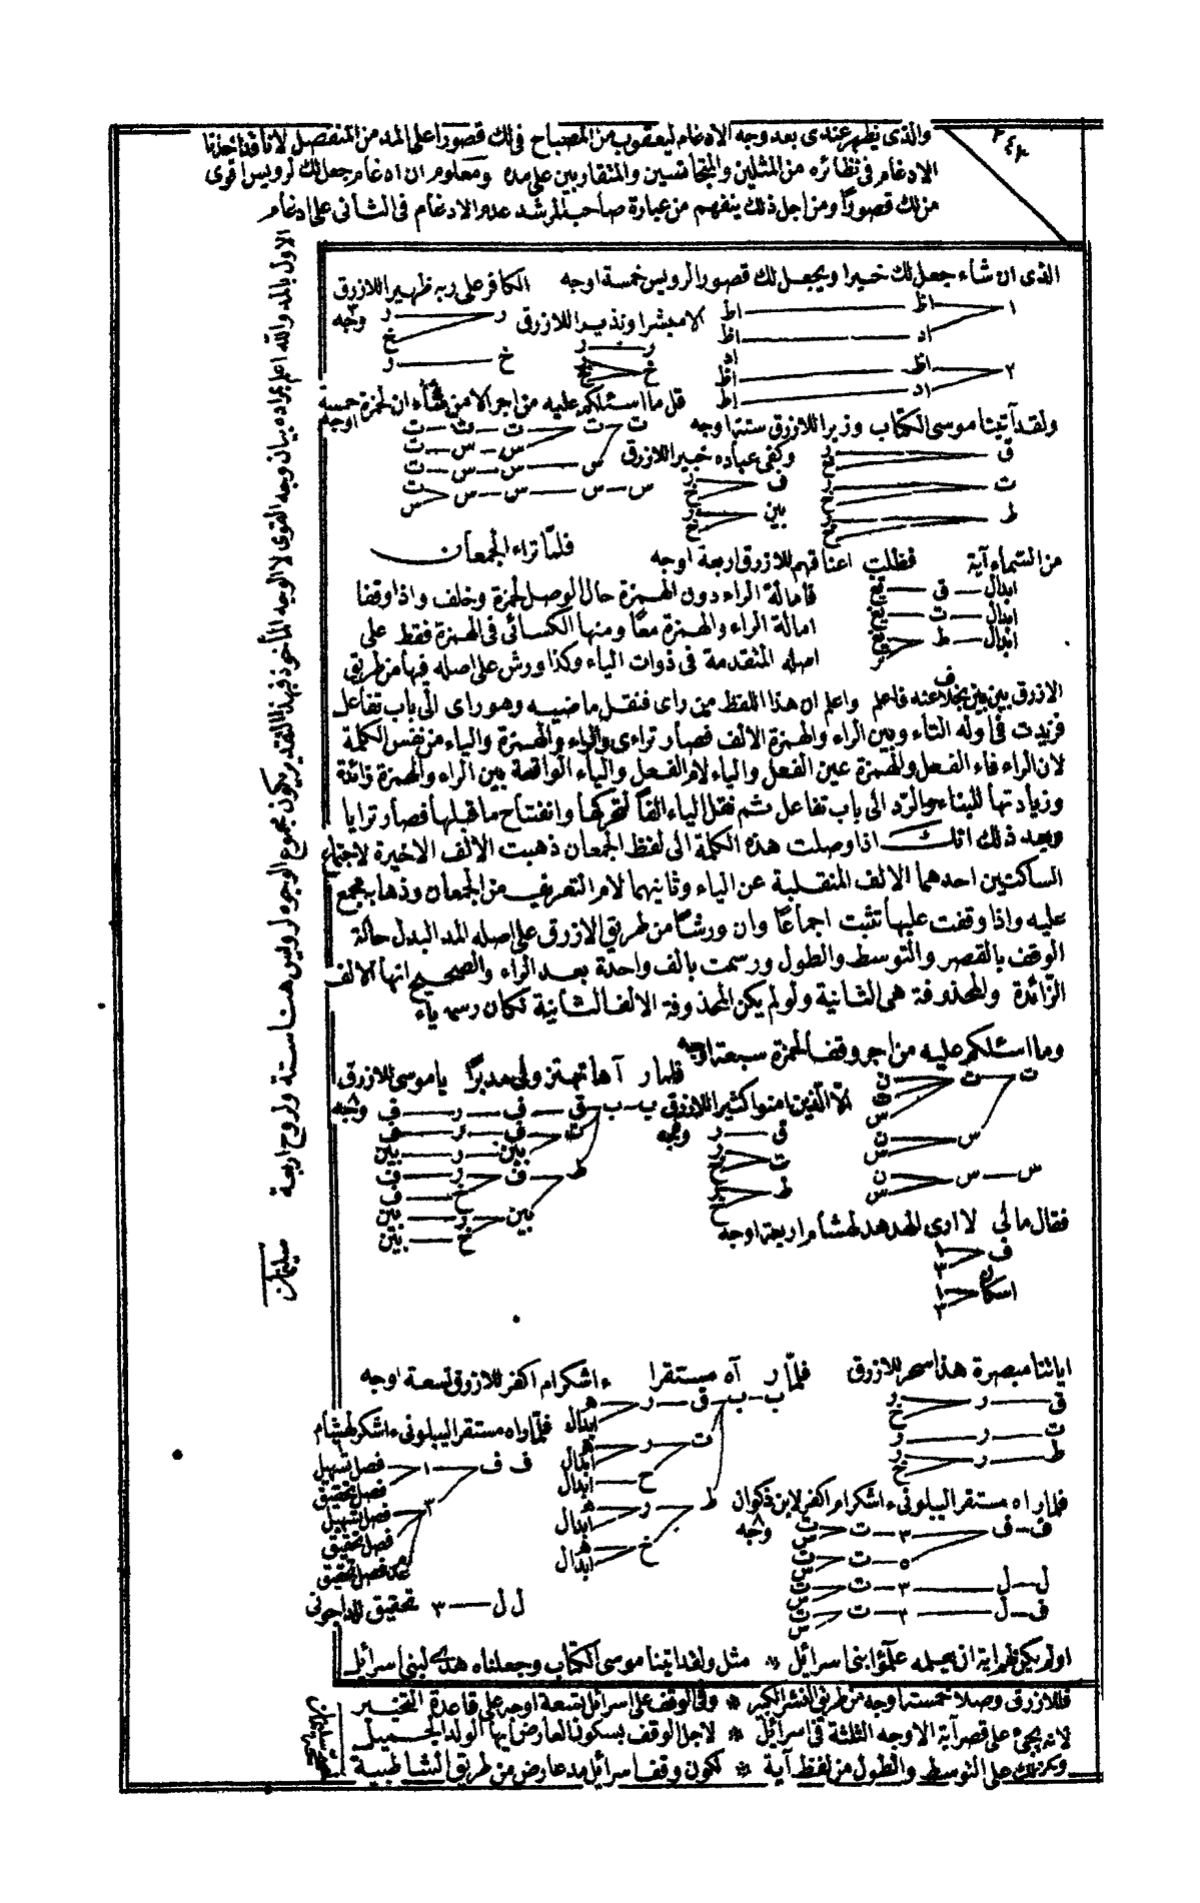 ٢٤٨
والذى يظهر عندى بعد وجه الادغام ليعقوب من المصباح فى لك قصورا على المد من المنفصل لانا قد اخذنا
الادغام فى نظائره من المثلين والمتجانسين والمتقاربين على مده ومعلوم ان ادغام جعل لك لرويس اقوى
من لك قصورًا ومن اجل ذلك ينفهم من عبارة صاحب المرشد عدم الادغام فى الثانى على ادغام
الاول بالمد والله اعلم بمراده بيان وجه القوى لا الوجيه المأخوذ فبهذا التقدير يكون مجموع الوجوه لرويس هنا ستة ولروح اربعة
الذى ان شاء جعل لك خيرا ويجعل لك قصورا لرويس خمسة اوجه
١ اظ اظ
اد اظ
اد
٢ اظ اظ
اد اظ
الكافر على ربه ظهيرا للازرق
٣ وجه
ر ر
خ
خ ر
الا مبشرا ونذيرا للازرق
ر ر
خ
قل ما اسئلكم عليه من اجر الا من شاء ان لحمزة خمسة
اوجه
ت ت ت ت ت
س س ت
س س س ت
س س س س ت
س
ولقد آتينا موسى الكتاب وزيرا للازرق ستة اوجه
ق ر
خ
ت ر
خ
ط ر
خ
وكفى عباده خبيرا للازرق
ف ر
خ
بين ر
خ
من السماء آية فظلت اعناقهم للازرق اربعة اوجه
ابدال ق
ابدال ت
ابدال ط
فلمّا تراء الجمعان
فامالة الراء دون الهمزة حال الوصل لحمزة وخلف واذا وقفا
امالة الراء والهمزة معًا ومنها الكسائى فى الهمزة فقط على
اصله المتقدمة فى ذوات الياء وكذا ورش على اصله فيها من طريق
الازرق بين بين بخلاف عنه فاعلم واعلم ان هذا اللفظ من راى فنقل ماضيه وهو راى الى باب تفاعل
فزيدت فى اوله التاء وبين الراء والهمزة الالف فصار تراءى والراء والهمزة والياء من نفس الكلمة
لان الراء فاء الفعل والهمزة عين الفعل والياء لام الفعل والياء الواقعة بين الراء والهمزة زائدة
وزيادتها للبناء والرّد الى باب تفاعل ثم نقل الياء الفًا لتحركها وانفتاح ما قبلها فصار ترايا
وبعد ذلك انك اذا وصلت هذه الكلمة الى لفظ الجمعان ذهبت الالف الاخيرة لاجتماع
الساكنين احدهما الالف المنقلبة عن الياء وثانيهما لام التعريف من الجمعان وذهابه مجمع
عليه واذا وقفت عليها تثبت اجماعًا وان ورشًا من طريق الازرق على اصله المد البدل حالة
الوقف بالقصر والتوسط والطول ورسمت بالف واحدة بعد الراء والصحيح انها الالف
الزّائدة والمحذوفة هى الثانية ولو لم يكن المحذوفة الالف الثانية لكان رسمه ياء
وما اسئلكم عليه من اجر وقفا لحمزة سبعة اوجه
ت ت ن
س
س ن
س
س س ن
س
الّا الّذين امنوا كثيرا للازرق
وجه
ق ر
ت ر
خ
ط ر
خ
فلما ر آها تهتز ولى مدبرًا يا موسى للازرق
٨ وجه
ب ب ق ف ر ف
ت ف ر ف
بين ر بين
ط ف ر ف
خ ف
بين ر بين
خ بين
فقال مالى لا ارى الهدهد لهشام اربعة اوجه
ف ١
٣
اسكان ١
٣
سليمان
اياتنا مبصرة هذا سحر للازرق
ق ر ر
خ
ت ر ر
ط ر ر
خ
فلمّا ر آه مستقرا ءاشكر ام اكفر للازرق تسعة اوجه
ب ب ق ر هـ
ابدال
ت ر هـ
ابدال
خ ابدال
ط ر هـ
ابدال
خ هـ
ابدال
فلمّا راه مستقرا ليبلونى ءاشكر لهشام
ف ف ١ فصل تسهيل
فصل تحقيق
٣ فصل تسهيل
فصل تحقيق
فصل تحقيق
ل ل ٣ تحقيق للداجونى
فلما راه مستقرا ليبلونى ءاشكر ام اكفر لابن ذكوان
٨ وجه
ف ف ٣ ت ت
س
٥ ت ت
س
ل ل ٣ ت ت
س
ف ل ٣ ت ت
س
اولم يكن لهم اية ان يعلمه علمٰؤا بنى اسرائل * مثل ولقد اتينا موسى الكتاب وجعلناه هدى لبنى اسرائل
فللازرق وصلا خمسة اوجه من طريق النشر الكبير * وفى الوقف على اسرائل تسعة اوجه على قاعدة التخيير
لانه يجئ على قصر آية الاوجه الثلثة فى اسرائل * لاجل الوقف بسكون العارض ايها الولد الجميل
وكذلك على التوسط والطول من لفظ آية * لكون وقف اسرائل مد عارض من طريق الشاطبية